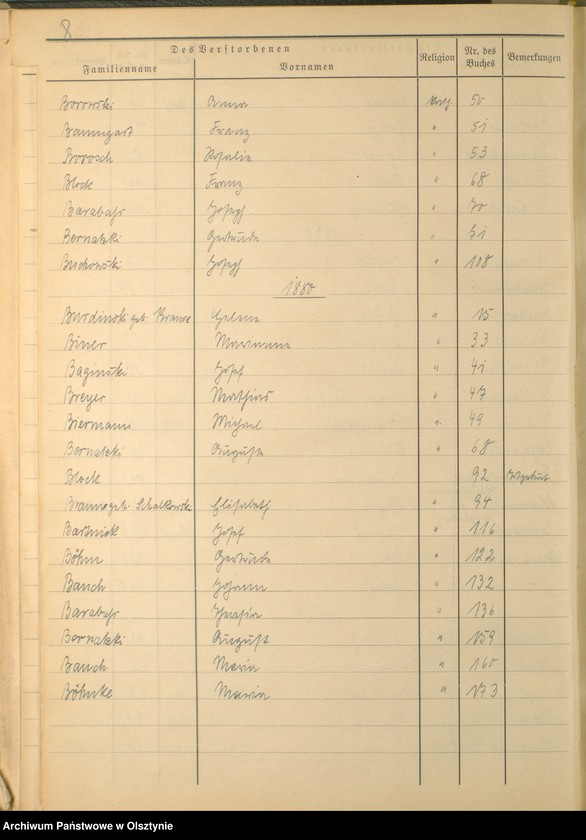 8
Des Verstorbenen
Familienname Vornamen Religion Nr. des Buches Bemerkungen
Borowski Anna kath. 50
Baumgart Franz " 51
Borosch Rosalie " 53
Block Franz " 68
Barabasz Joseph " 70
Bernatzki Gertrude " 71
Buchowski Joseph " 108
1880
Burdinski geb. Braun Helene " 15
Biner Marianna " 33
Baginski Josef " 41
Breyer Mathias " 47
Biermann Michael " 49
Bernatzki Auguste " 68
Block 92 Totgeburt
Braun geb. Schalkowski Elisabeth " 94
Bartnick Josef " 116
Böhm Gertrude " 122
Bauch Johann " 132
Barabasz " 136
Bernatzki August " 159
Bauch Maria " 160
Böhnke Maria " 173
Archiwum Państwowe w Olsztynie